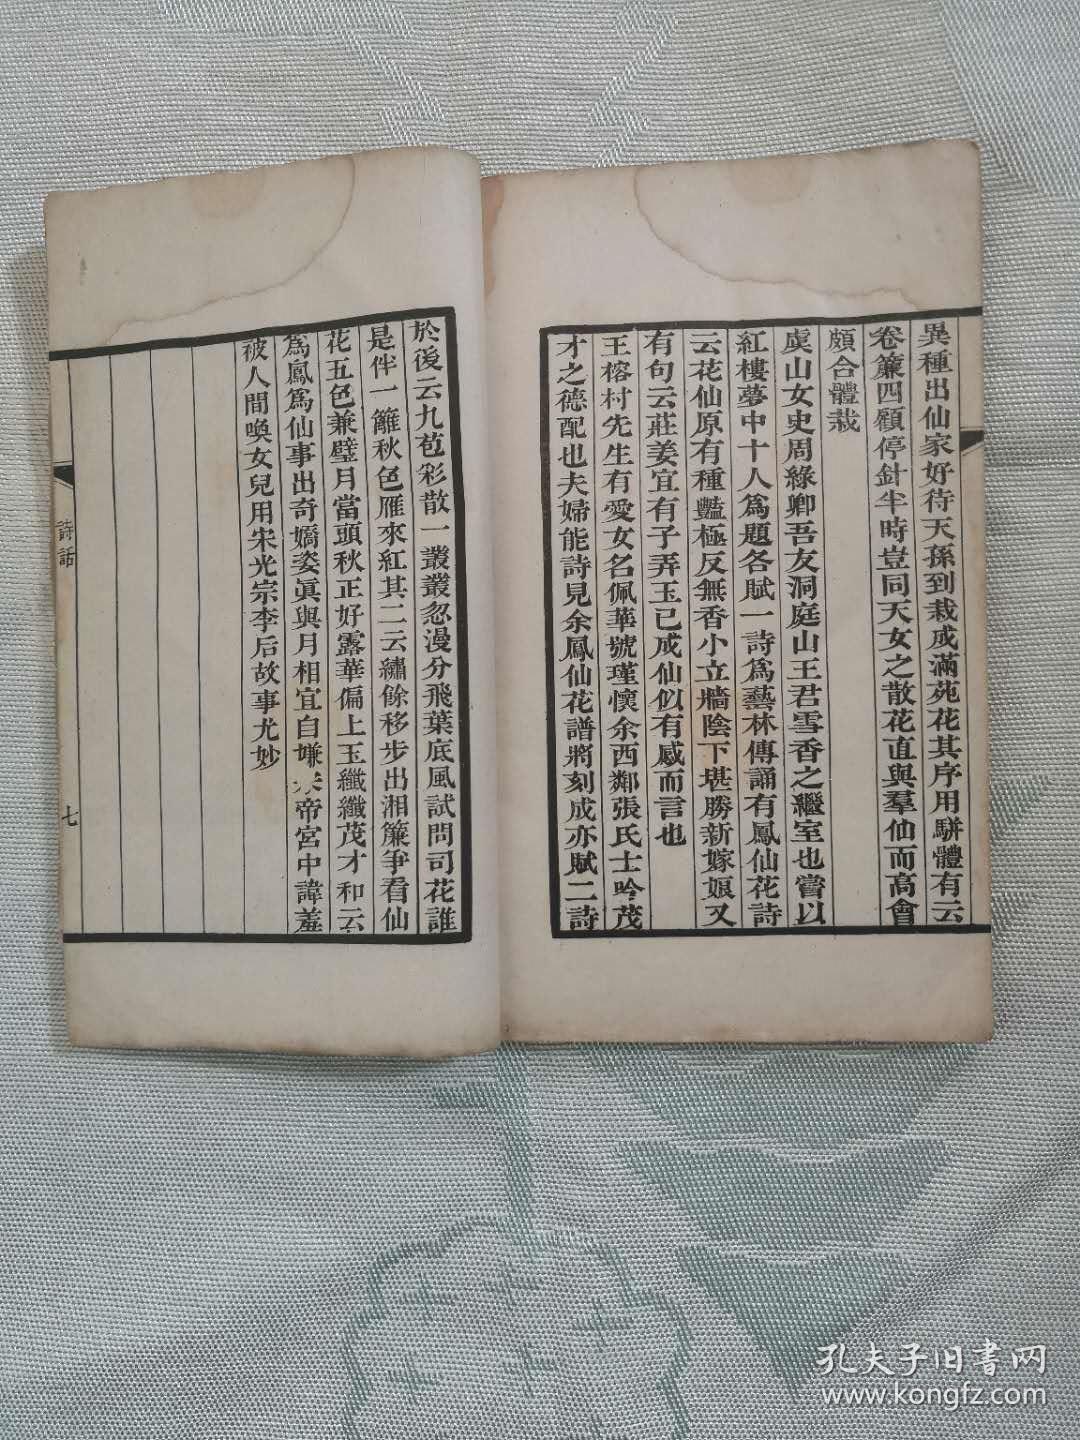 異種出仙家好待天孫到栽成滿苑花其序用駢體有云
卷簾四顧停針半時豈同天女之散花直與羣仙而高會
頗合體裁
虞山女史周綠卿吾友洞庭山王君雪香之繼室也嘗以
紅樓夢中十人爲題各賦一詩爲藝林傳誦有鳳仙花詩
云花仙原有種豔極反無香小立牆陰下堪勝新嫁娘又
有句云莊姜宜有子弄玉已成仙似有感而言也
王榕村先生有愛女名佩華號瑾懷余西鄰張氏士吟茂
才之德配也夫婦能詩見余鳳仙花譜將刻成亦賦二詩
於後云九苞彩散一叢叢忽漫分飛葉底風試問司花誰
是伴一籬秋色雁來紅其二云繡餘移步出湘簾爭看仙
花五色兼璧月當頭秋正好露華偏上玉纖纖茂才和云
爲鳳爲仙事出奇嬌姿眞與月相宜自嫌帝宮中諱羞
被人間喚女兒用宋光宗李后故事尤妙
詩話
七
孔夫子旧書网
www.kongfz.com